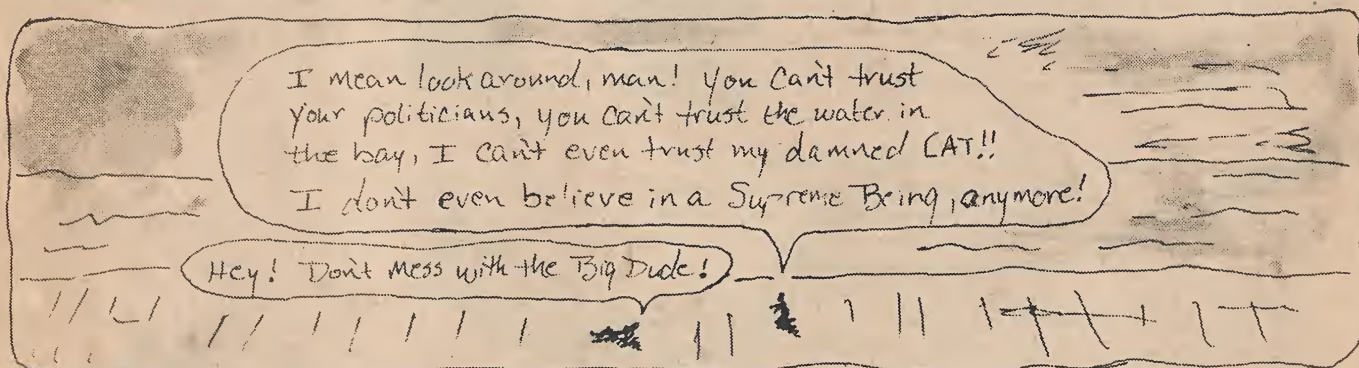 I mean look around, man! You can't trust
your politicians, you can't trust the water in
the bay, I can't even trust my damned CAT!!
I don't even believe in a Supreme Being, anymore!
Hey! Don't mess with the Big Dude!